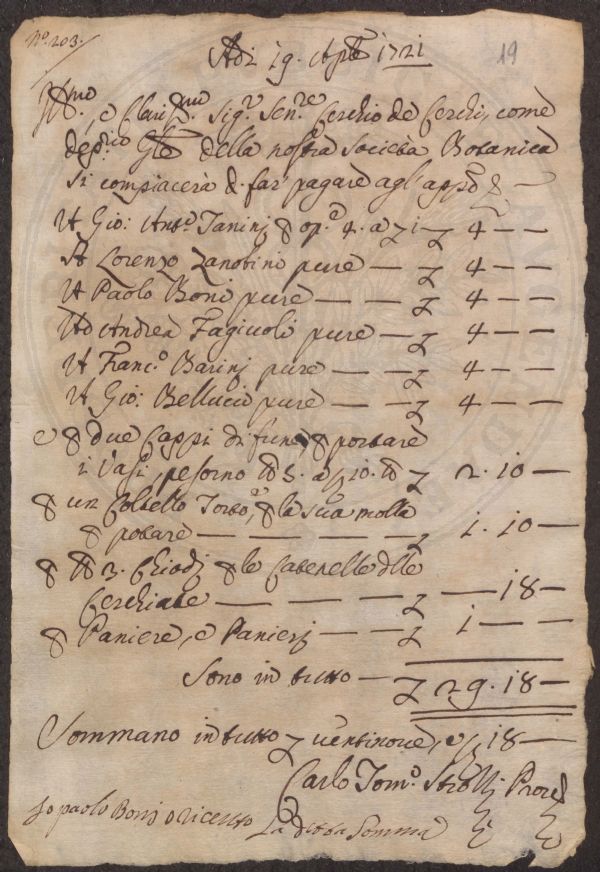 N.º 203.
19
Adi 19. Aple 1721
Ill.mo, e Claris.mo Sig.r Sen.re Cerchio de Cerchi, come
dep.rio Gle della nostra Società Botanica
si compiacerà di far pagare agl'app.i
A Gio: Ant.º Tanini p op.e 4. a L 1 — L 4 — —
A Lorenzo Zanobini pure — L 4 — —
A Paolo Boni pure — — L 4 — —
Ad Andrea Fagiuoli pure — L 4 — —
A Franc.º Barinj pure — L 4 — —
A Gio: Bellucci pure — — L 4 — —
e p due Cappi di fune, p portare
i Vasi, pesorno lb 5. a s 10. lb L 2. 10 —
p un Coltello Torto, p la sua molla
p potare — — — — — L 1. 10 —
p lb 3. Chiodj p le Catenelle dlle
Cerchiate — — — L — 18 —
p Paniere, e Panierj — — L 1 — —
Sono in tutto — L 29. 18 —
Sommano in tutto L ventinove, e s 18 —
Carlo Tom.º Strozzi Prore
Io paolo Bonj o riceuto La detta Somma